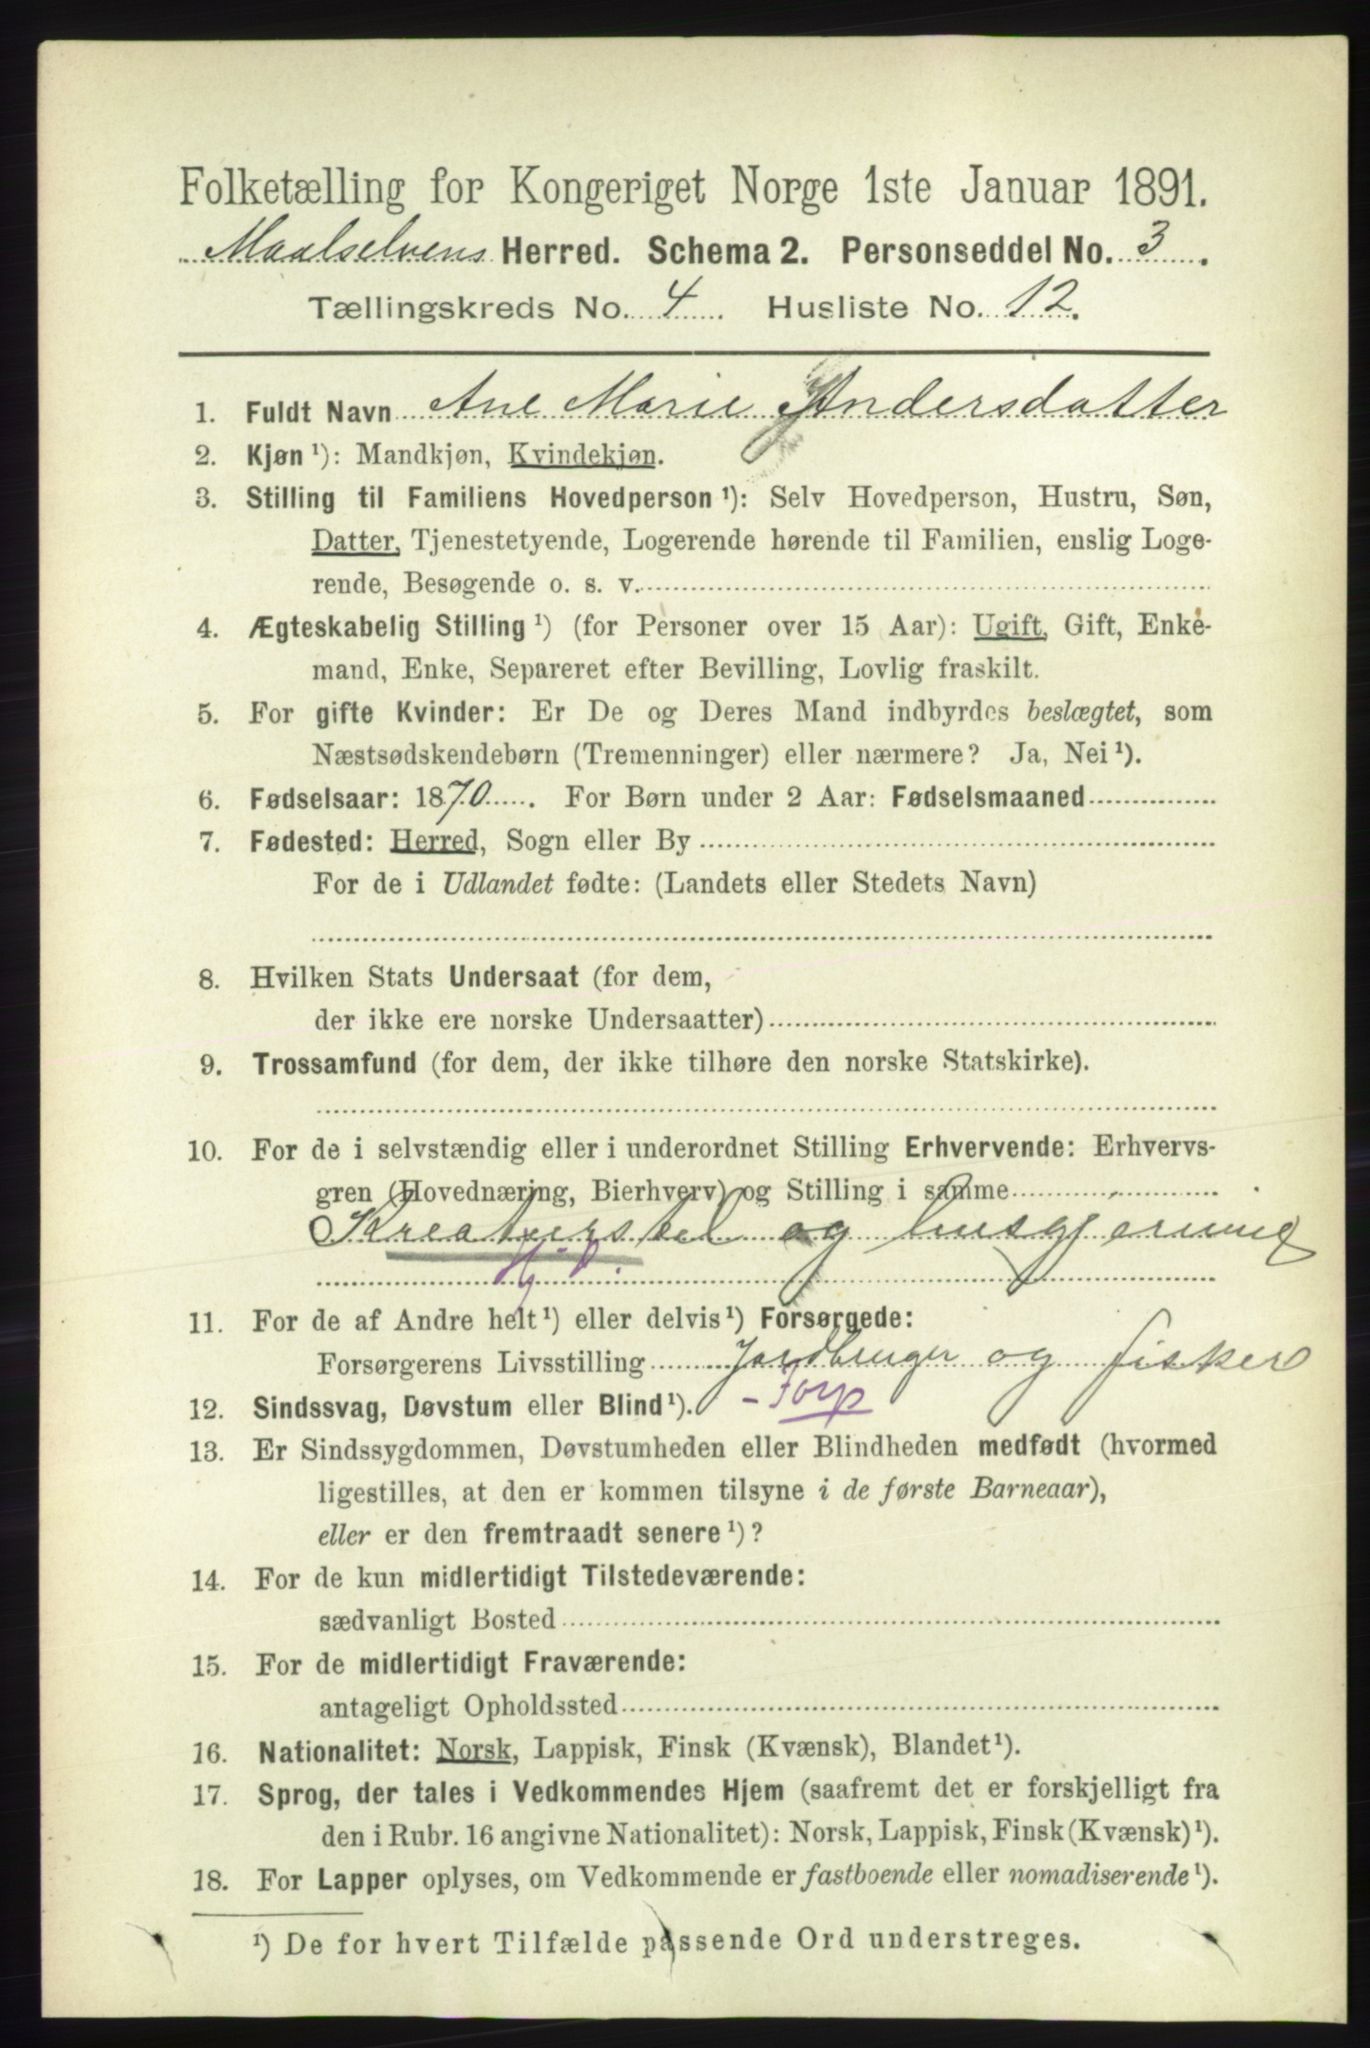 Folketælling for Kongeriget Norge 1ste Januar 1891.
Maalselvens Herred. Schema 2. Personseddel No. 3.
Tællingskreds No. 4 Husliste No. 12.
1. Fuldt Navn Ane Marie Andersdatter
2. Kjøn ¹): Mandkjøn, Kvindekjøn.
3. Stilling til Familiens Hovedperson ¹): Selv Hovedperson, Hustru, Søn,
Datter, Tjenestetyende, Logerende hørende til Familien, enslig Loge-
rende, Besøgende o. s. v.
4. Ægteskabelig Stilling ¹) (for Personer over 15 Aar): Ugift, Gift, Enke-
mand, Enke, Separeret efter Bevilling, Lovlig fraskilt.
5. For gifte Kvinder: Er De og Deres Mand indbyrdes beslægtet, som
Næstsødskendebørn (Tremenninger) eller nærmere? Ja, Nei ¹).
6. Fødselsaar: 1870. For Børn under 2 Aar: Fødselsmaaned
7. Fødested: Herred, Sogn eller By
For de i Udlandet fødte: (Landets eller Stedets Navn)
8. Hvilken Stats Undersaat (for dem,
der ikke ere norske Undersaatter)
9. Trossamfund (for dem, der ikke tilhøre den norske Statskirke).
10. For de i selvstændig eller i underordnet Stilling Erhvervende: Erhvervs-
gren (Hovednæring, Bierhverv) og Stilling i samme
Kreaturstel og husgjerning
11. For de af Andre helt ¹) eller delvis ¹) Forsørgede:
Forsørgerens Livsstilling Jordbruger og fisker
12. Sindssvag, Døvstum eller Blind ¹). - Forp
13. Er Sindssygdommen, Døvstumheden eller Blindheden medfødt (hvormed
ligestilles, at den er kommen tilsyne i de første Barneaar),
eller er den fremtraadt senere ¹)?
14. For de kun midlertidigt Tilstedeværende:
sædvanligt Bosted
15. For de midlertidigt Fraværende:
antageligt Opholdssted
16. Nationalitet: Norsk, Lappisk, Finsk (Kvænsk), Blandet ¹).
17. Sprog, der tales i Vedkommendes Hjem (saafremt det er forskjelligt fra
den i Rubr. 16 angivne Nationalitet): Norsk, Lappisk, Finsk (Kvænsk) ¹).
18. For Lapper oplyses, om Vedkommende er fastboende eller nomadiserende ¹).
¹) De for hvert Tilfælde passende Ord understreges.